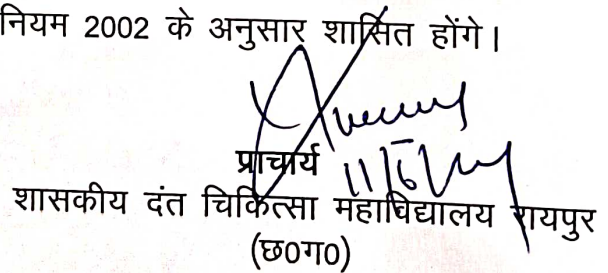 नियम 2002 के अनुसार शासित होंगे।
प्राचार्य
शासकीय दंत चिकित्सा महाविद्यालय रायपुर
(छ0ग0)